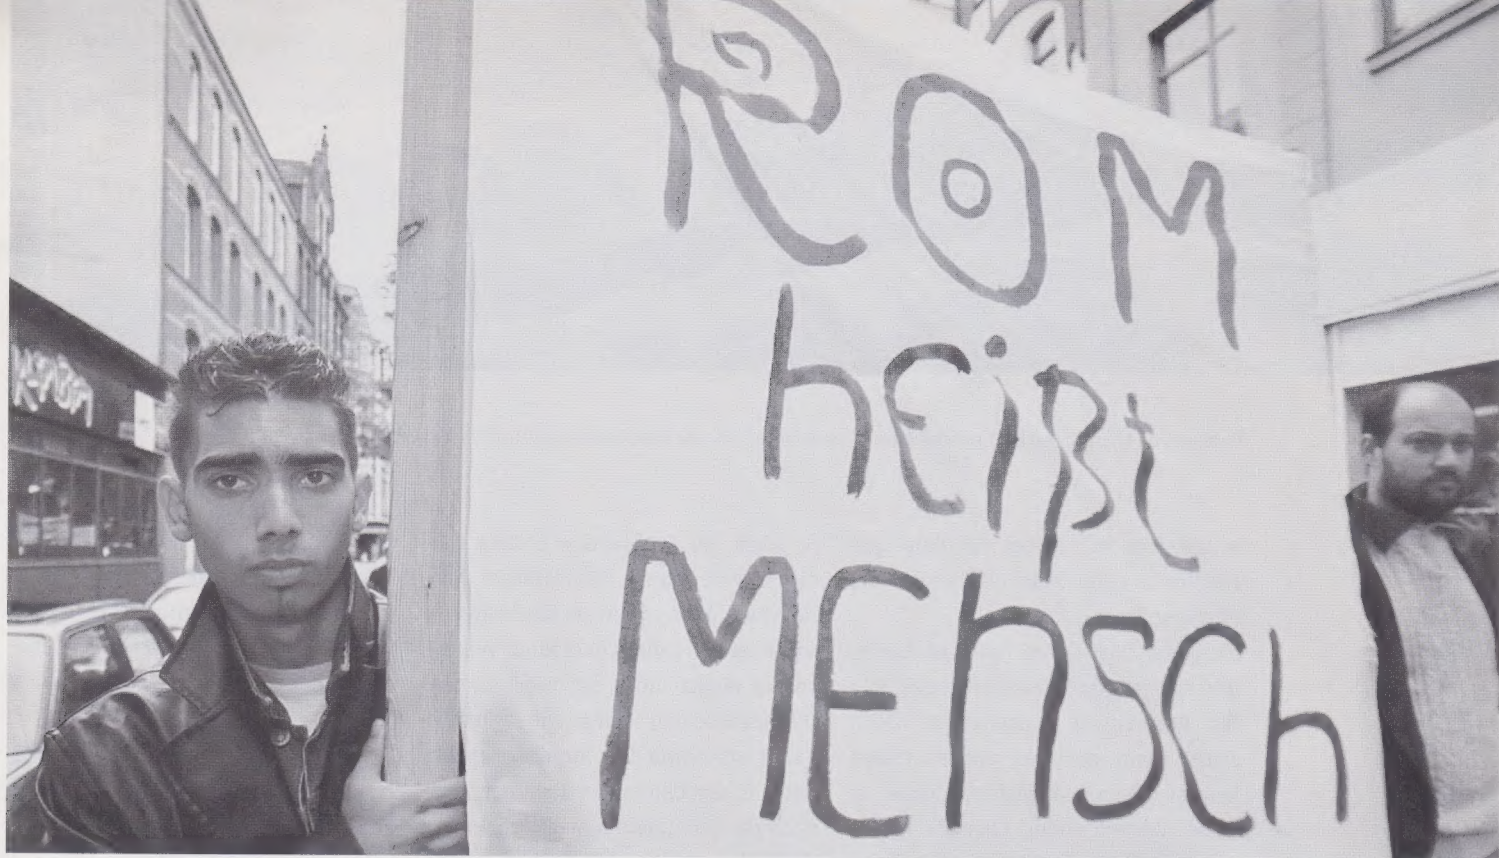 ROM
heißt
MEnsch